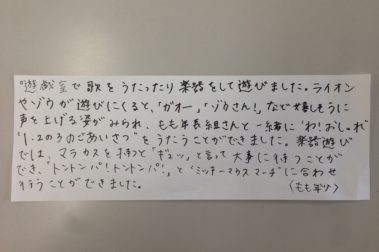 遊戯室で歌をうたったり楽器をして遊びました。ライオン
やゾウが遊びにくると、「ガオー」「ゾウさん！」など嬉しそうに
声を上げる姿がみられ、もも年長組さんと一緒に‘わ！おしゃれ’
‘1.2の3のごあいさつ’をうたうことができました。楽器遊び
では、マラカスを持つと「ギュッ」と言って大事に持つことが
でき、「トントンパ！トントンパ！」と‘ミッキーマウスマーチ’に合わせ
行うことができました。
（もも